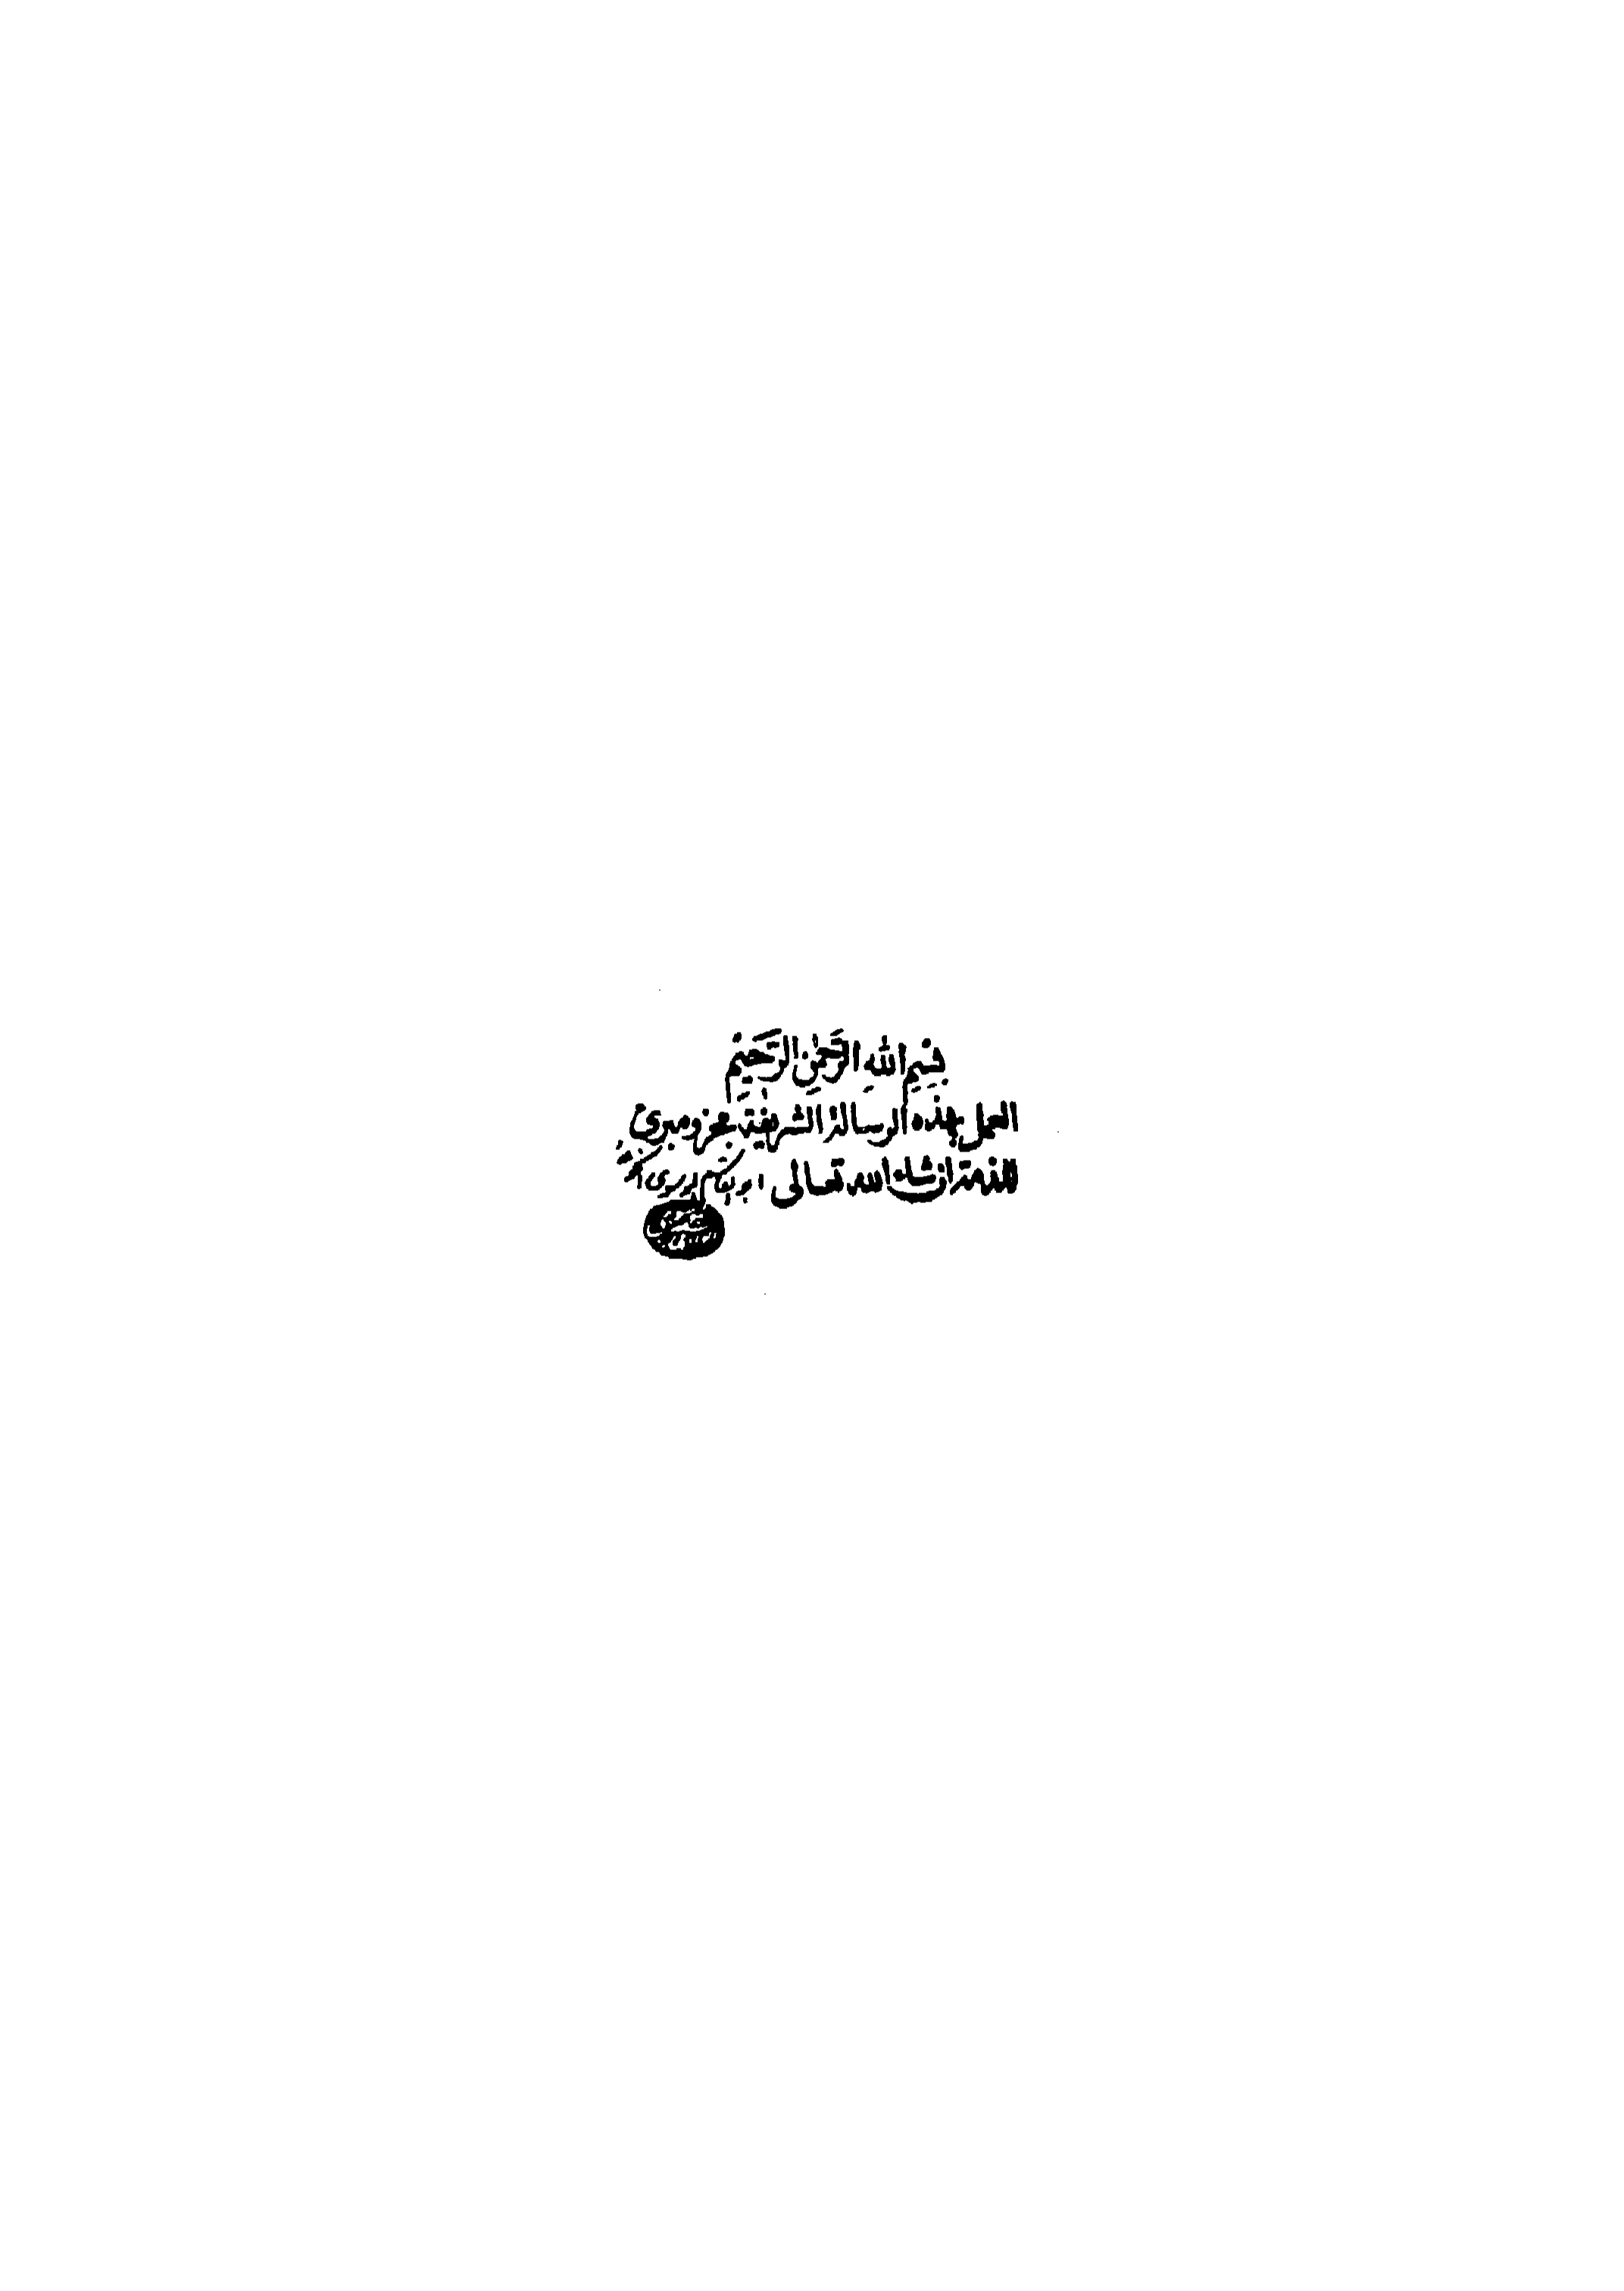 بِسْمِ اللهِ الرَّحْمٰنِ الرَّحِيْمِ
العمل بهذه الرسالة الشريفة مجز ومبرئ
للذمة ان شاء الله تعالى ابو القاسم الموسوي الخوئي